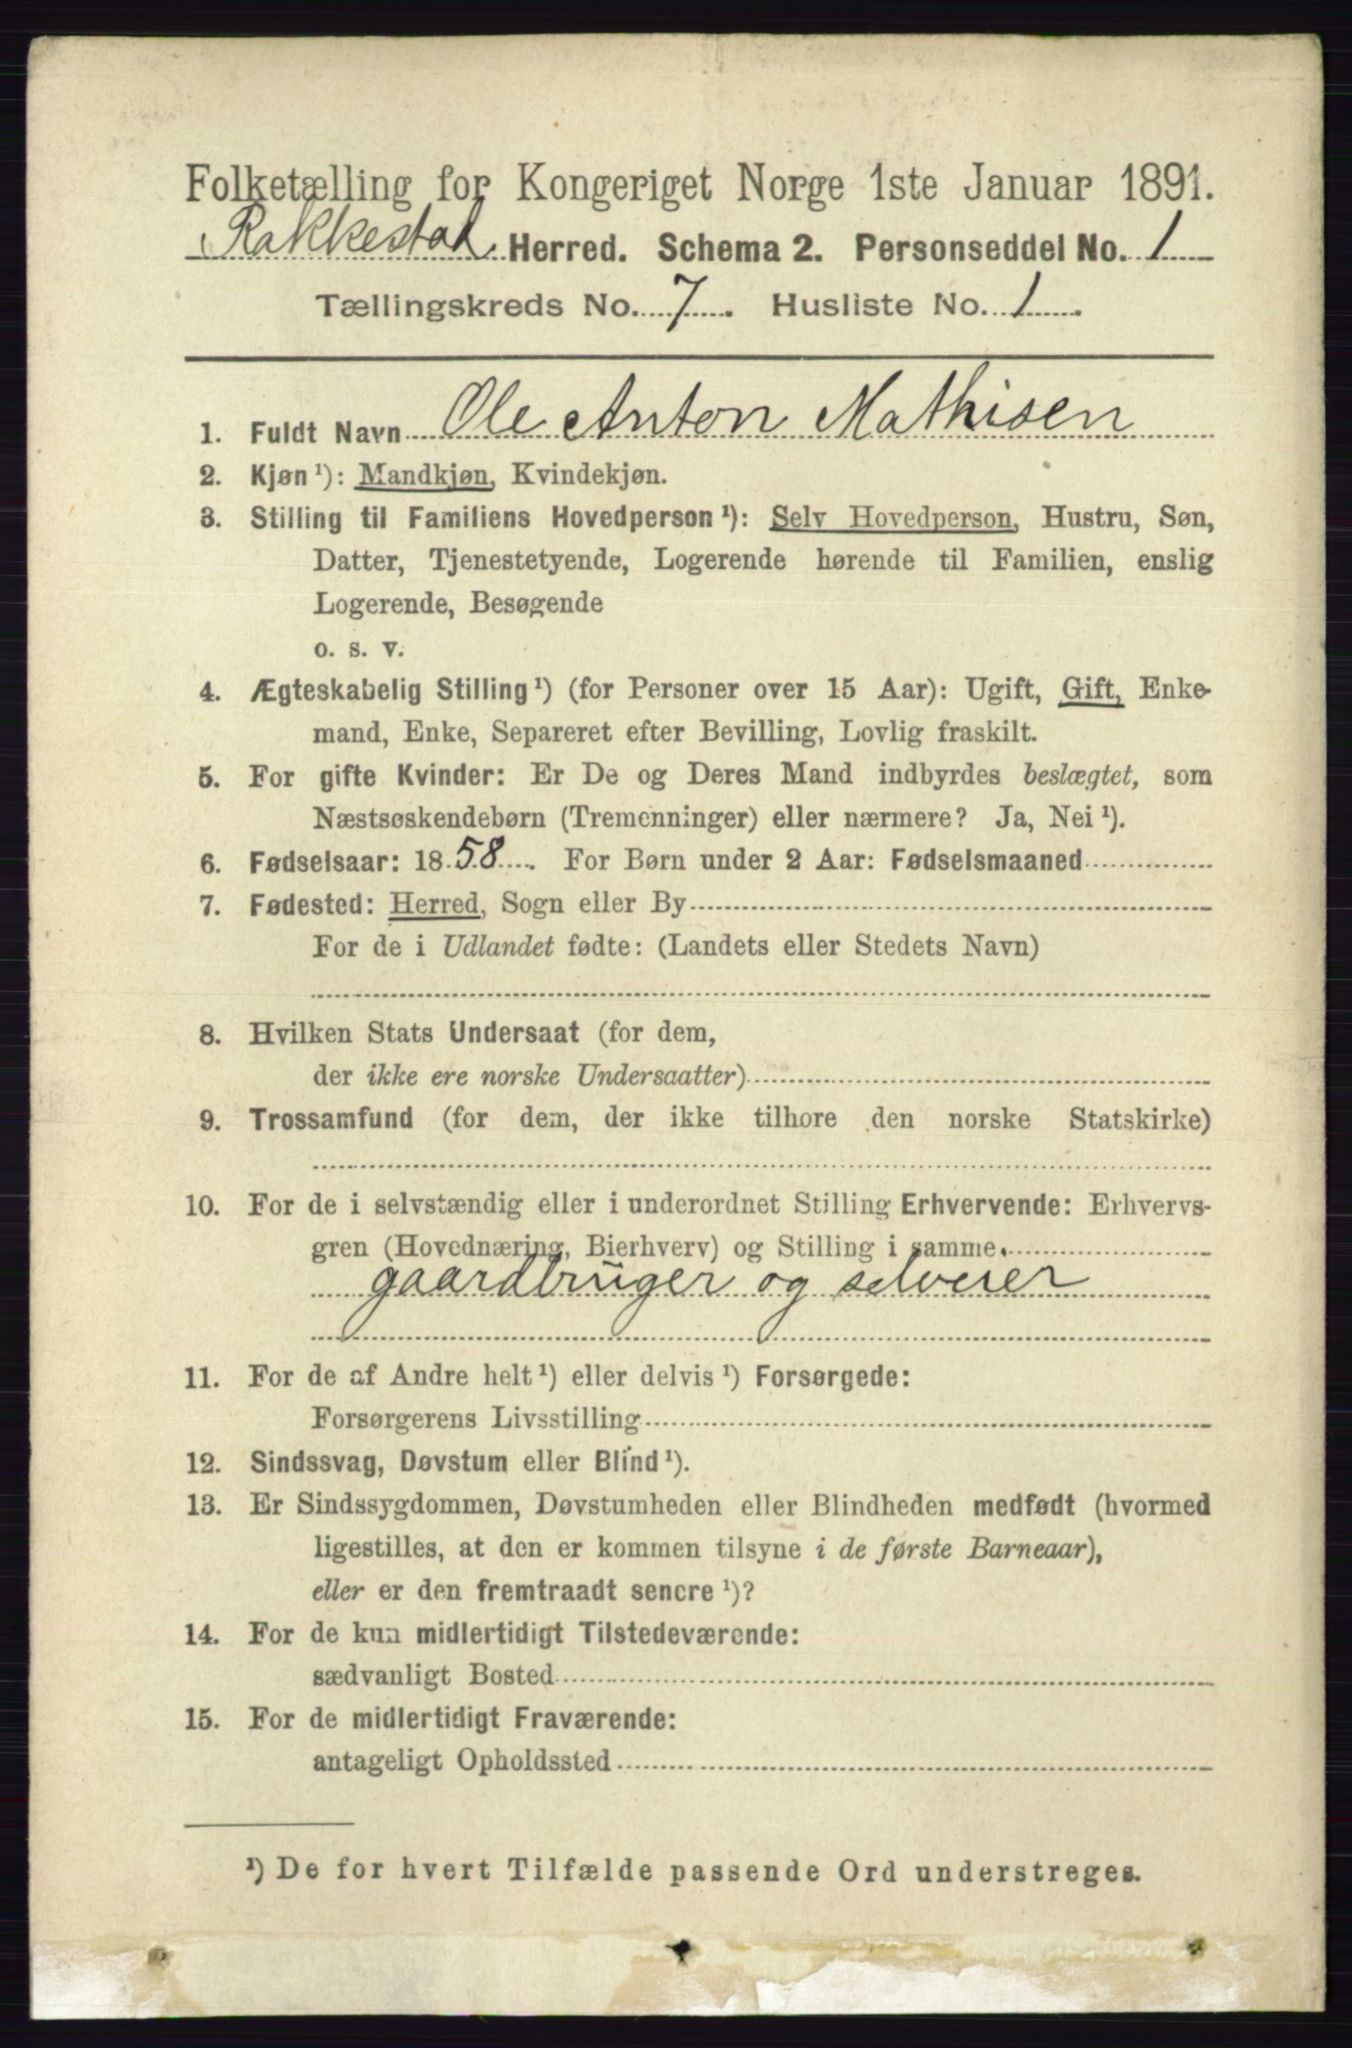 Folketælling for Kongeriget Norge 1ste Januar 1891.
Rakkestad Herred. Schema 2. Personseddel No. 1
Tællingskreds No. 7. Husliste No. 1.
1. Fuldt Navn Ole Anton Mathisen
2. Kjøn ¹): Mandkjøn, Kvindekjøn.
3. Stilling til Familiens Hovedperson ¹): Selv Hovedperson, Hustru, Søn,
Datter, Tjenestetyende, Logerende hørende til Familien, enslig
Logerende, Besøgende
o. s. v.
4. Ægteskabelig Stilling ¹) (for Personer over 15 Aar): Ugift, Gift, Enke-
mand, Enke, Separeret efter Bevilling, Lovlig fraskilt.
5. For gifte Kvinder: Er De og Deres Mand indbyrdes beslægtet, som
Næstsøskendebørn (Tremenninger) eller nærmere? Ja, Nei ¹).
6. Fødselsaar: 1858. For Børn under 2 Aar: Fødselsmaaned
7. Fødested: Herred, Sogn eller By
For de i Udlandet fødte: (Landets eller Stedets Navn)
8. Hvilken Stats Undersaat (for dem,
der ikke ere norske Undersaatter)
9. Trossamfund (for dem, der ikke tilhøre den norske Statskirke)
10. For de i selvstændig eller i underordnet Stilling Erhvervende: Erhvervs-
gren (Hovednæring, Bierhverv) og Stilling i samme.
gaardbruger og selveier
11. For de af Andre helt ¹) eller delvis ¹) Forsørgede:
Forsørgerens Livsstilling
12. Sindssvag, Døvstum eller Blind ¹).
13. Er Sindssygdommen, Døvstumheden eller Blindheden medfødt (hvormed
ligestilles, at den er kommen tilsyne i de første Barneaar),
eller er den fremtraadt senere ¹)?
14. For de kun midlertidigt Tilstedeværende:
sædvanligt Bosted
15. For de midlertidigt Fraværende:
antageligt Opholdssted
¹) De for hvert Tilfælde passende Ord understreges.